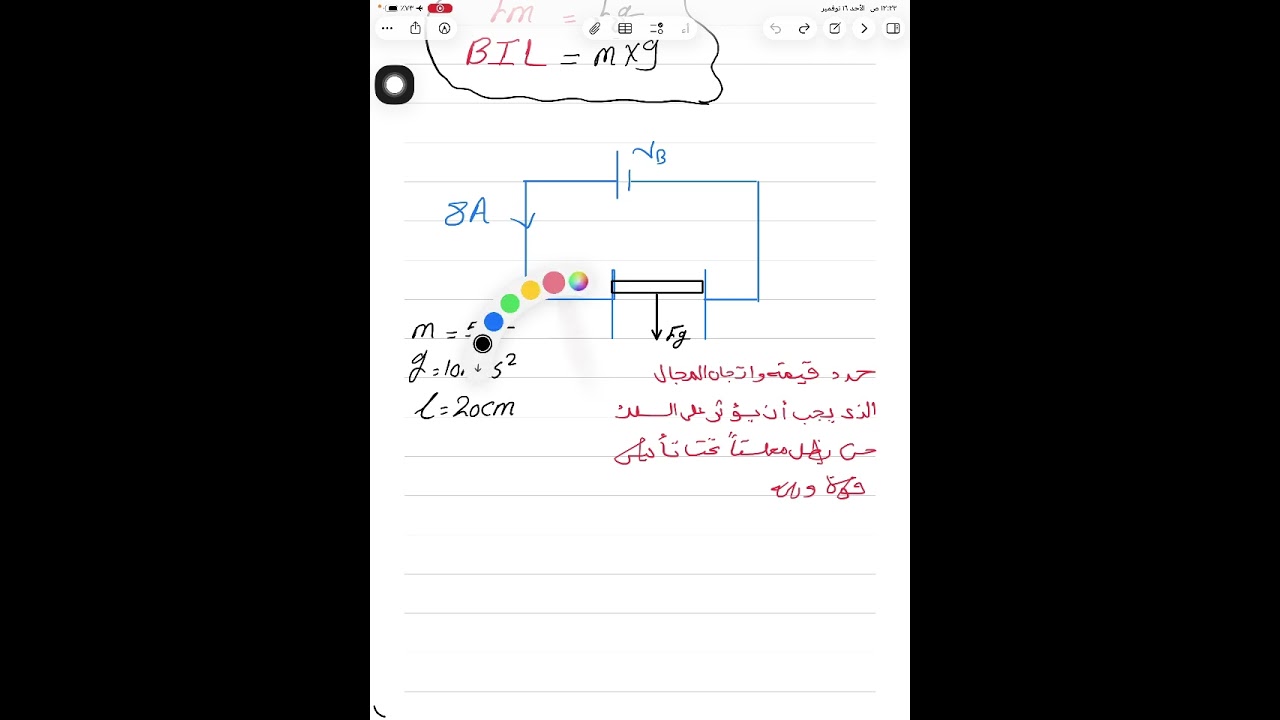 ١٢:٢٢ ص الأحد ١٦ نوفمبر
٪٧٣
Fm = Fg
BIL = mxg
VB
8A
Fg
m =
g = 10 s²
l = 20cm
حدد قيمة واتجاه المجال
الذي يجب أن يؤثر على السلك
حتى يظل معلقاً تحت تأثير
قوة وزنه